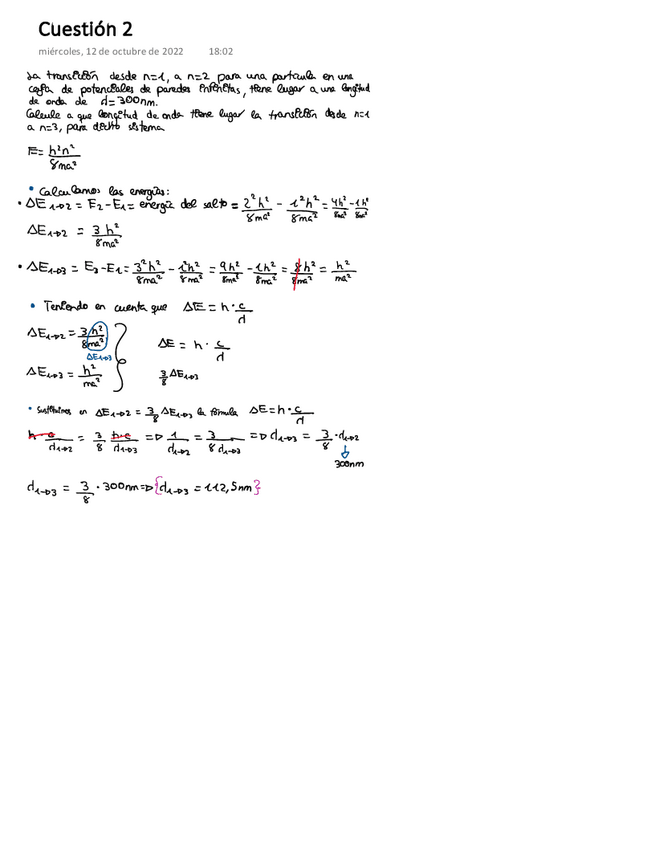 Cuestión 2
miércoles, 12 de octubre de 2022 18:02
La transición desde n=1, a n=2 para una partícula en una
caja de potenciales de paredes infinitas, tiene lugar a una longitud
de onda de d=300nm.
Calcule a que longitud de onda tiene lugar la transición desde n=1
a n=3, para dicho sistema
E= h²n²/8ma²
• Calculamos las energías:
• ΔE1→2 = E2-E1= energía del salto = 2²h²/8ma² - 1²h²/8ma² = 4h²/8ma² - 1h²/8ma²
ΔE1→2 = 3h²/8ma²
• ΔE1→3 = E3-E1= 3²h²/8ma² - 1²h²/8ma² = 9h²/8ma² - 1h²/8ma² = 8h²/8ma² = h²/ma²
• Teniendo en cuenta que ΔE = h·c/d
ΔE1→2 = 3h²/8ma²
ΔE1→3
ΔE = h·c/d
ΔE1→3 = h²/ma²
3/8 ΔE1→3
• Sustituimos en ΔE1→2 = 3/8 ΔE1→3 la fórmula ΔE=h·c/d
h·c/d1→2 = 3/8 h·c/d1→3 => 1/d1→2 = 3/8 d1→3 => d1→3 = 3/8 · d1→2
300nm
d1→3 = 3/8 · 300nm => {d1→3 = 112,5nm}